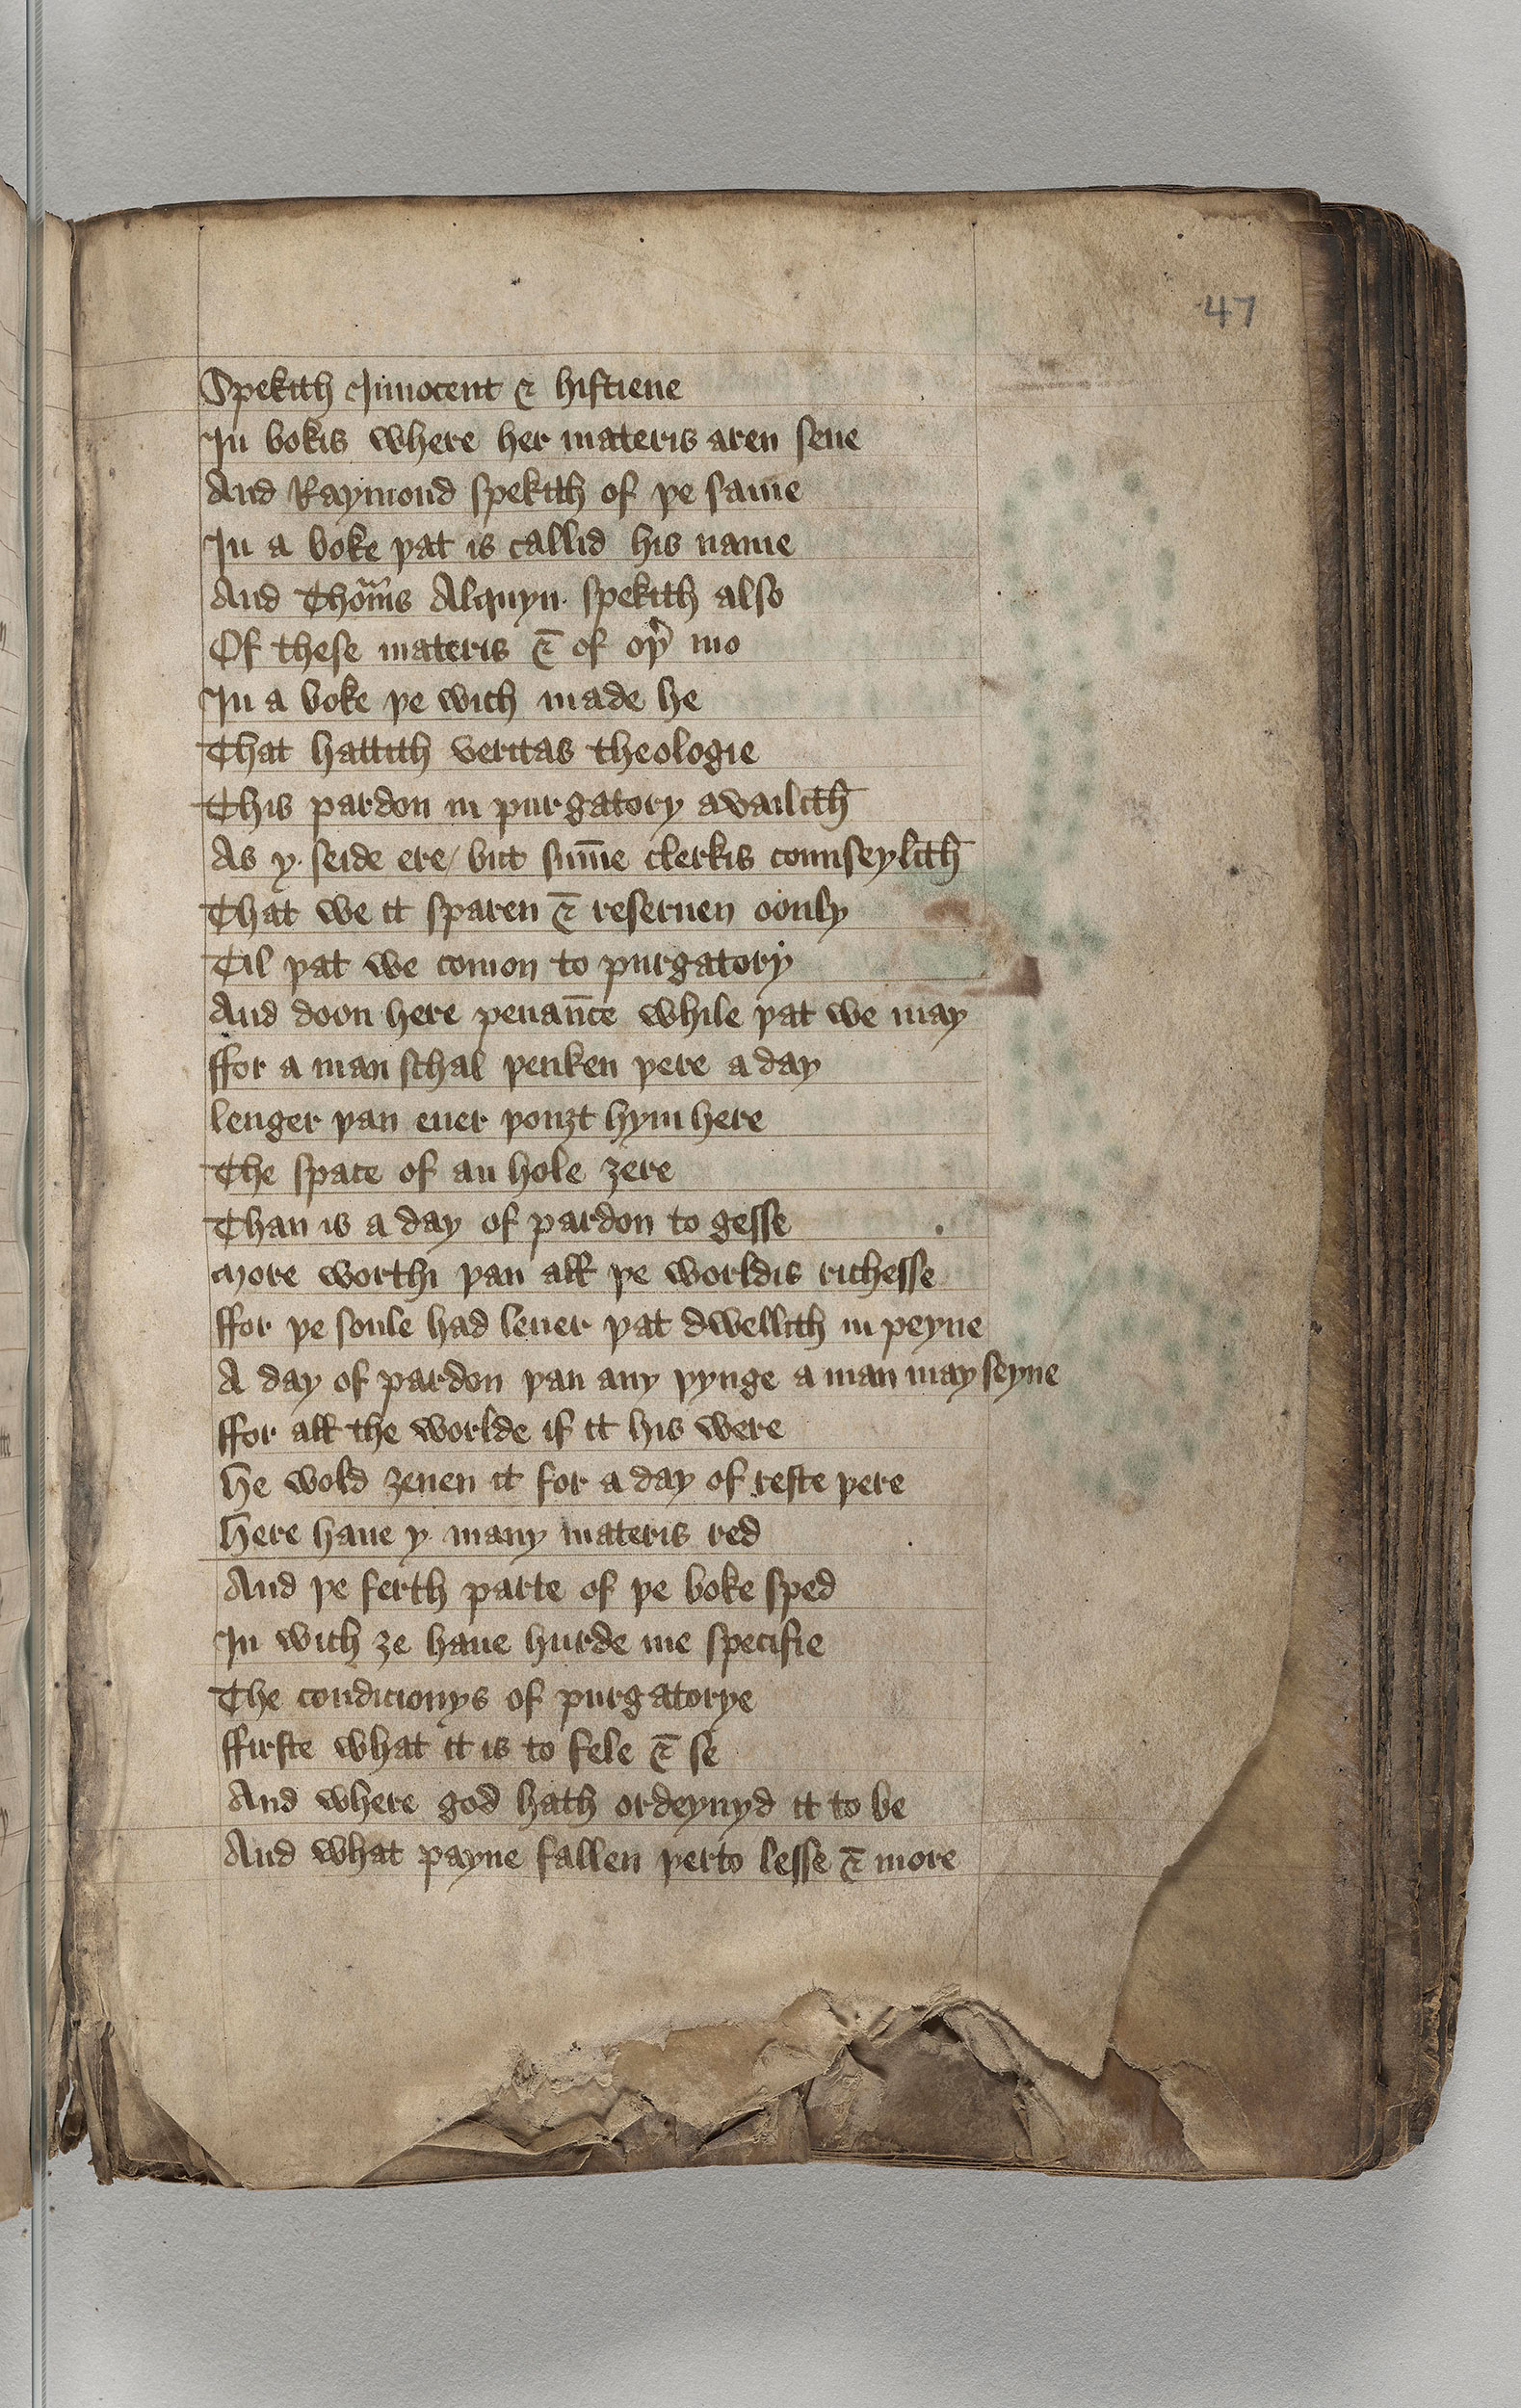 47
Spekith Innocent & histiene
In bokis where her materis aren sene
And Raymond spekith of þe same
In a boke þat is callid his name
And Thomͣs Alquyn· spekith also
Of these materis & of oþ̉ mo
In a boke þe wich made he
That hattith veritas theologie
This pardon in purgatory availith̄
As y· seide ere / but sum̄e clerkis counseylith̄
That we it sparen & reseruen oonly
Til þat we comon to purgatory
And doon here penan̄ce while þat we may
ffor a man schal þenken þere a day
lenger þan euer þouȝt hym here
The space of an hole ȝere
Than is a day of pardon to gesse
More worthi þan aƚƚ þe worldis richesse
ffor þe soule had leuer þat dwellith in peyne
A day of pardon þan any þynge a man may seyne
ffor aƚƚ the worlde if it his were
He wold ȝeuen it for a day of reste þere
Here haue y· many materis red
And þe ferth parte of þe boke sped
In wich ȝe haue hurde me specifie
The condicionys of purgatorye
ffirste what it is to fele & se
And where god hath ordeynyd it to be
And what payne fallen þerto lesse & more